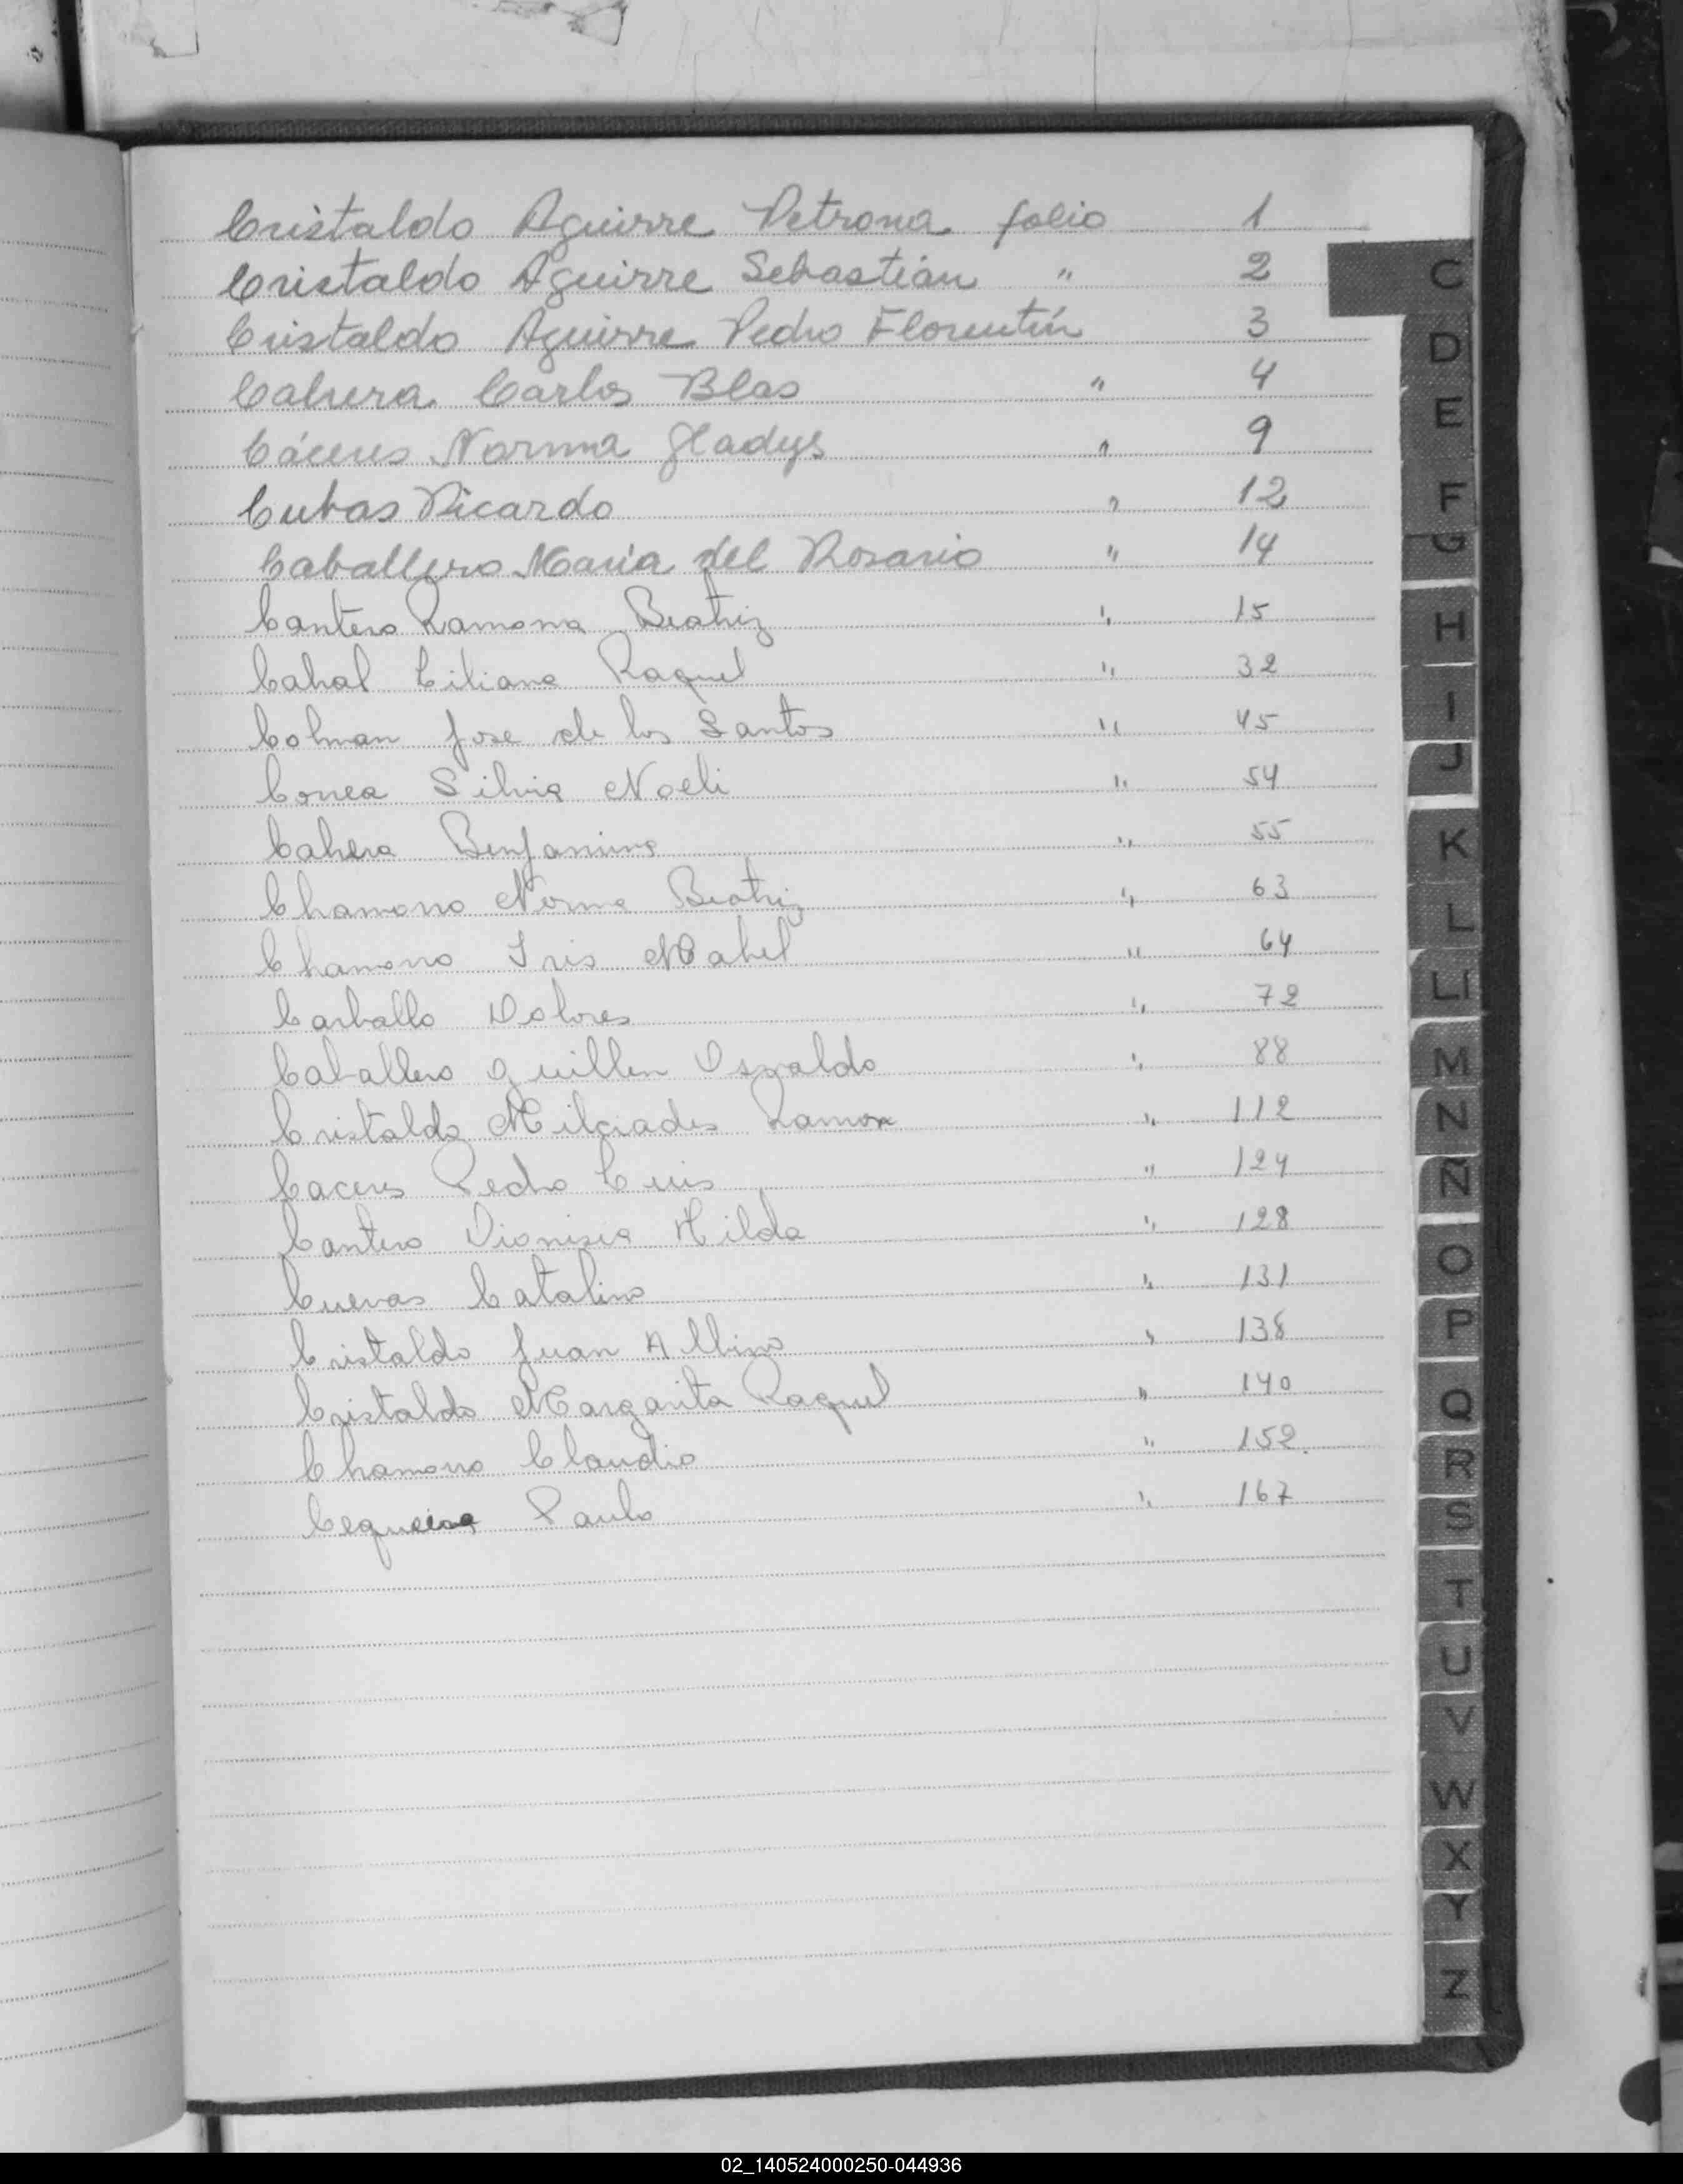 Cristaldo Aguirre Petrona folio 1
Cristaldo Aguirre Sebastián " 2
Cristaldo Aguirre Pedro Florentín 3
Cabrera Carlos Blas " 4
Cáceres Norma Gladys " 9
Cubas Ricardo " 12
Caballero María del Rosario " 14
Cantero Ramona Beatriz " 15
Cabral Liliana Raquel " 32
Colman Jose de los Santos " 45
Correa Silvia Noeli " 54
Cabrera Benjamina " 55
Chamorro Norma Beatriz " 63
Chamorro Iris Mabel " 64
Carballo Dolores " 72
Caballero Guillen Osvaldo " 88
Cristaldo Milciades Ramon " 112
Caceres Pedro Luis " 124
Cantero Dionisia Hilda " 128
Cuevas Catalino " 131
Cristaldo Juan Albino " 138
Cristaldo Margarita Raquel " 140
Chamorro Claudio " 152.
Cequeira Paulo " 167
C
D
E
F
G
H
I
J
K
L
Ll
M
N
Ñ
O
P
Q
R
S
T
U
V
W
X
Y
Z
02_140524000250-044936